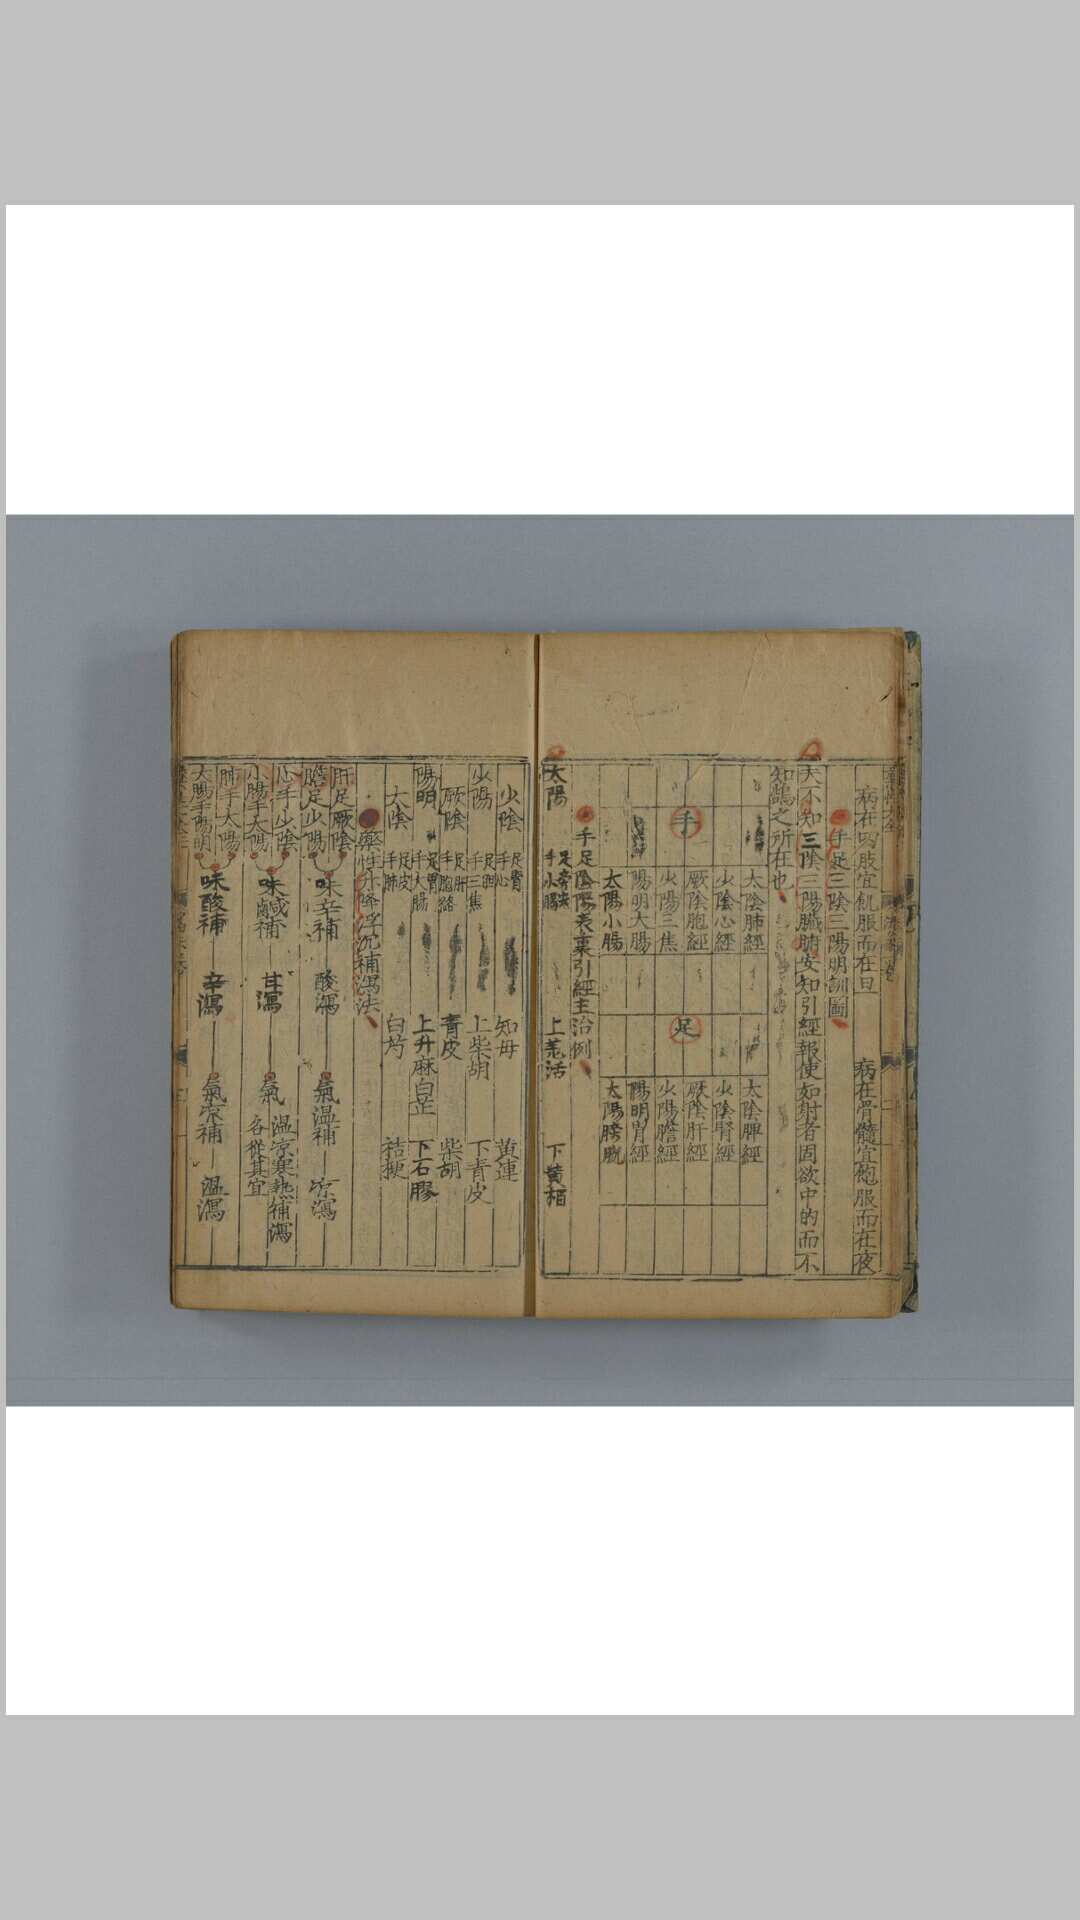 病在四肢宜飢服而在旦　病在骨髓宜飽服而在夜
手足三陰三陽明訓圖
夫不知三陰三陽臟腑安知引經報使如射者固欲中的而不
知鵠之所在也
手
太陰肺經
少陰心經
厥陰胞經
少陽三焦
陽明大腸
太陽小腸
足
太陰脾經
少陰腎經
厥陰肝經
少陽膽經
陽明胃經
太陽膀胱
手足陰陽表裏引經主治例
太陽　足膀胱　手小腸　上羌活　下黃柏
少陰　足腎　手心　知母　黃連
少陽　足胆　手三焦　上柴胡　下青皮
厥陰　足肝　手胞絡　青皮　柴胡
陽明　足胃　手大腸　上升麻白芷　下石膠
太陰　足皮　手肺　白芍　桔梗
藥性升降浮沉補瀉法
肝足厥陰
膽足少陽
味辛補　酸瀉　氣温補　凉瀉
心手少陰
小腸手太陽
味鹹補　甘瀉　氣　温凉寒熱補瀉
各從其宜
肺手大陽
大腸手陽明
味酸補　辛瀉　氣凉補　温瀉